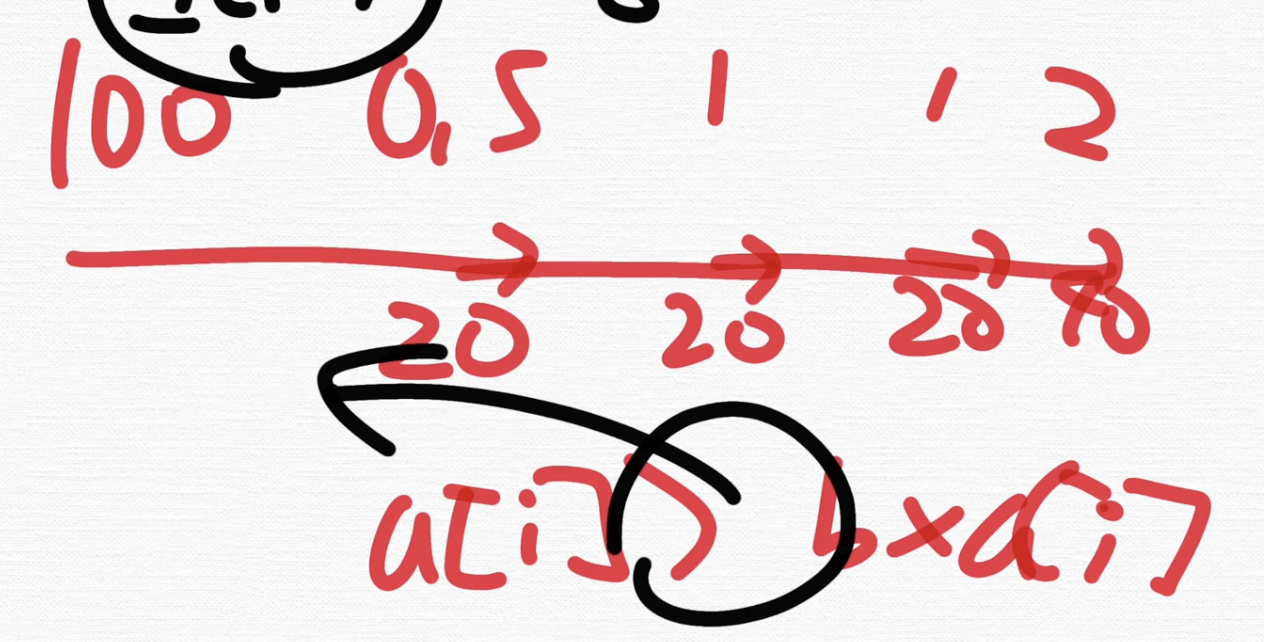 100 0,5 1 1 2
20 20 20
a[i] > b×a[i]